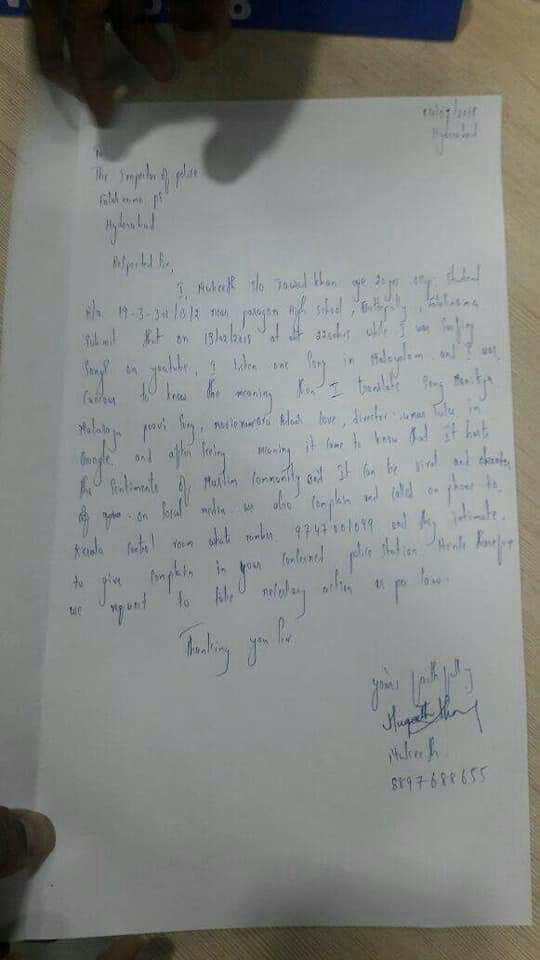 Hyderabad
To
The Inspector of police
Falaknuma ps
Hyderabad
Respected Sir,
I, Mukeeth s/o Jawad khan age 20 yrs occ: student
R/o 19-3-3 near paragon high school, Falaknuma
submit that on 13/02/2018 at 2200hrs while I was surfing
songs on youtube, I listen one song in Malayalam and I was
curious to know the meaning then I translate song Manikya
Malaraya poovi song, movie oru adaar love, director: umar lulu in
Google. and after seeing meaning it came to know that it hurts
the sentiments of Muslim community and It can be viral and
on social media we also complain and called on phone to
Kerala Control room number 9747001099 and they intimate
to give complain in your concerned police station. Hence therefore
we request to take necessary action as per law.
Thanking you Sir
yours faithfully
Mukeeth
8897688655